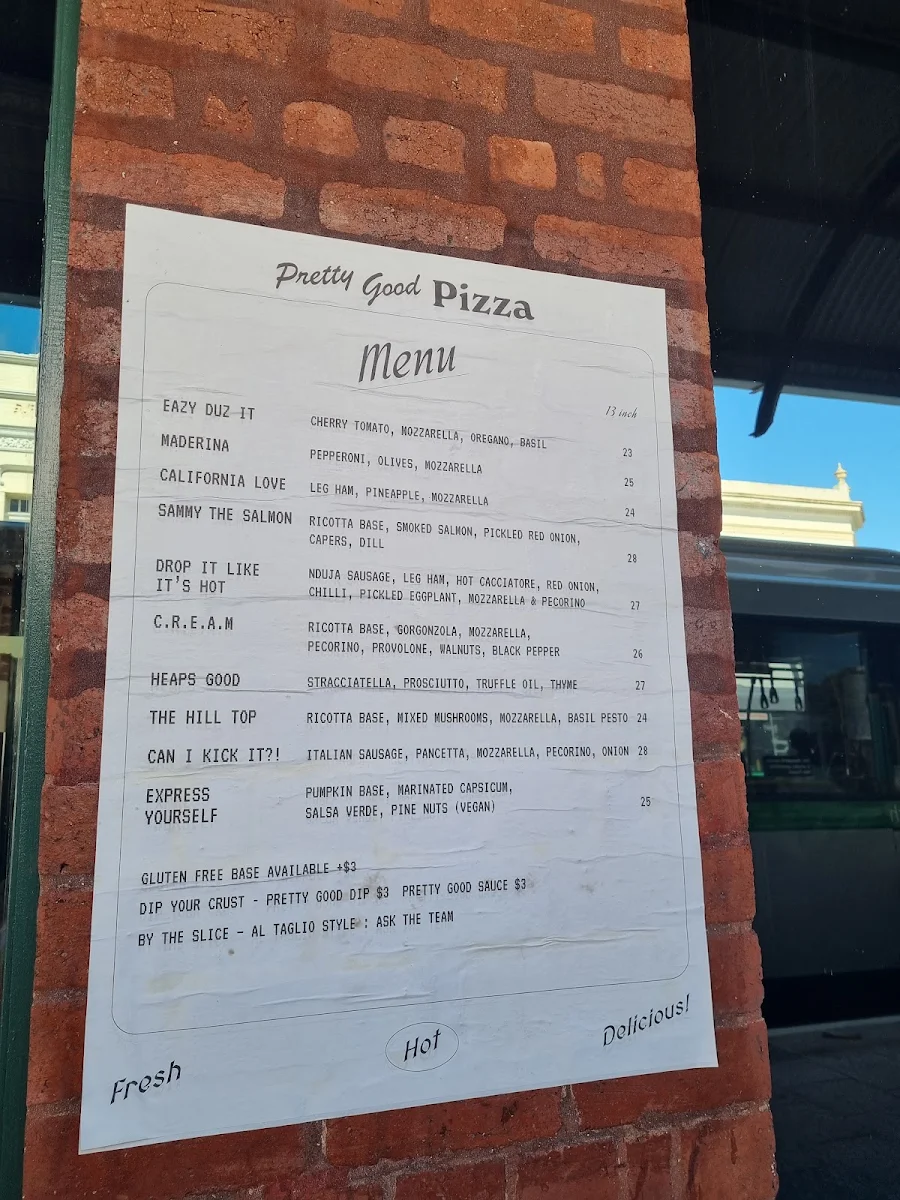 Pretty Good Pizza
Menu
13 inch
EAZY DUZ IT CHERRY TOMATO, MOZZARELLA, OREGANO, BASIL 23
MADERINA PEPPERONI, OLIVES, MOZZARELLA 25
CALIFORNIA LOVE LEG HAM, PINEAPPLE, MOZZARELLA 24
SAMMY THE SALMON RICOTTA BASE, SMOKED SALMON, PICKLED RED ONION,
CAPERS, DILL 28
DROP IT LIKE NDUJA SAUSAGE, LEG HAM, HOT CACCIATORE, RED ONION,
IT'S HOT CHILLI, PICKLED EGGPLANT, MOZZARELLA & PECORINO 27
C.R.E.A.M RICOTTA BASE, GORGONZOLA, MOZZARELLA,
PECORINO, PROVOLONE, WALNUTS, BLACK PEPPER 26
HEAPS GOOD STRACCIATELLA, PROSCIUTTO, TRUFFLE OIL, THYME 27
THE HILL TOP RICOTTA BASE, MIXED MUSHROOMS, MOZZARELLA, BASIL PESTO 24
CAN I KICK IT?! ITALIAN SAUSAGE, PANCETTA, MOZZARELLA, PECORINO, ONION 28
EXPRESS PUMPKIN BASE, MARINATED CAPSICUM,
YOURSELF SALSA VERDE, PINE NUTS (VEGAN) 25
GLUTEN FREE BASE AVAILABLE +$3
DIP YOUR CRUST - PRETTY GOOD DIP $3 PRETTY GOOD SAUCE $3
BY THE SLICE - AL TAGLIO STYLE : ASK THE TEAM
Fresh Hot Delicious!